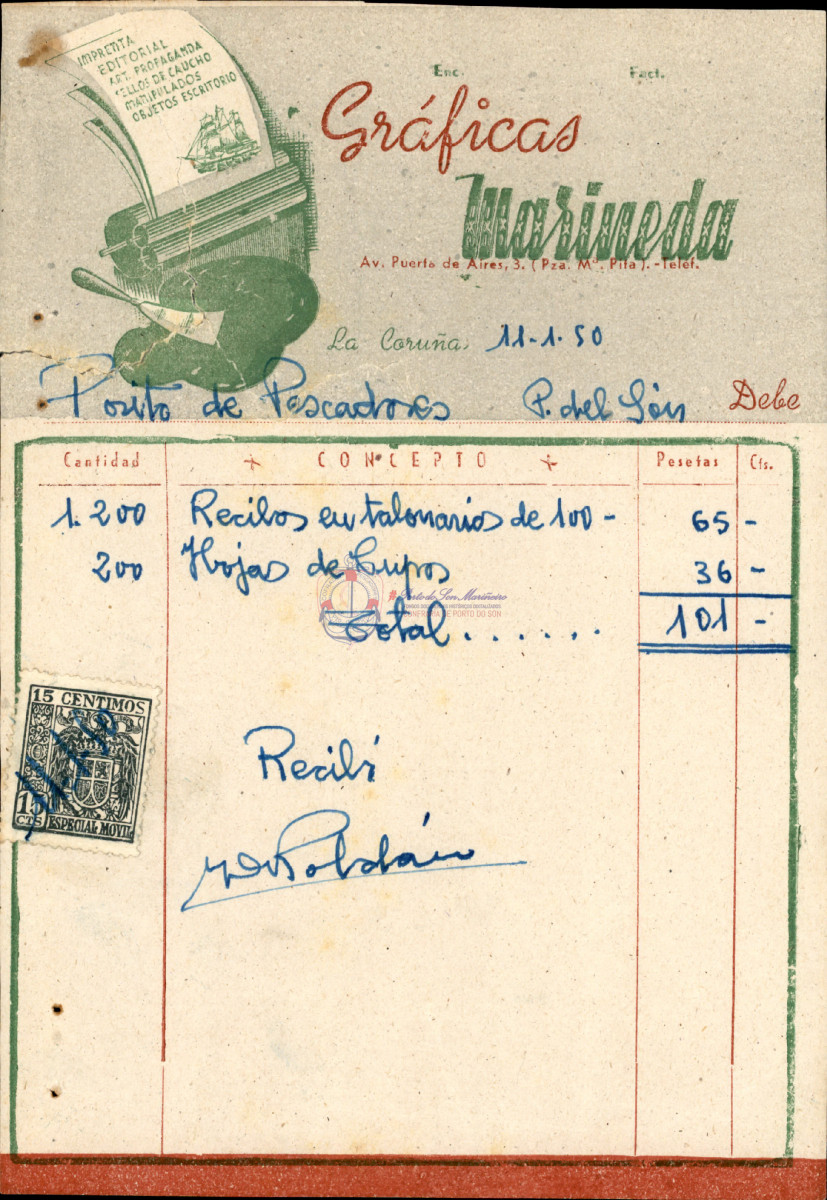 IMPRENTA
EDITORIAL
ART. PROPAGANDA
SELLOS DE CAUCHO
MANIPULADOS
OBJETOS ESCRITORIO
Enc. Fact.
Gráficas
Marineda
Av. Puerta de Aires, 3. (Pza. Mª. Pita). - Teléf.
La Coruña, 11-1-50
Posito de Pescadores P. del Són Debe
Cantidad CONCEPTO Pesetas Cts.
1.200 Recibos en talonarios de 100 - 65 -
200 Hojas de Cupos 36 -
Porto do Son Mariñeiro
CONFRARÍA DE PORTO DO SON
Total . . . . . . 101 -
15 CENTIMOS
15
CTS
ESPECIAL MOVIL
Recibí